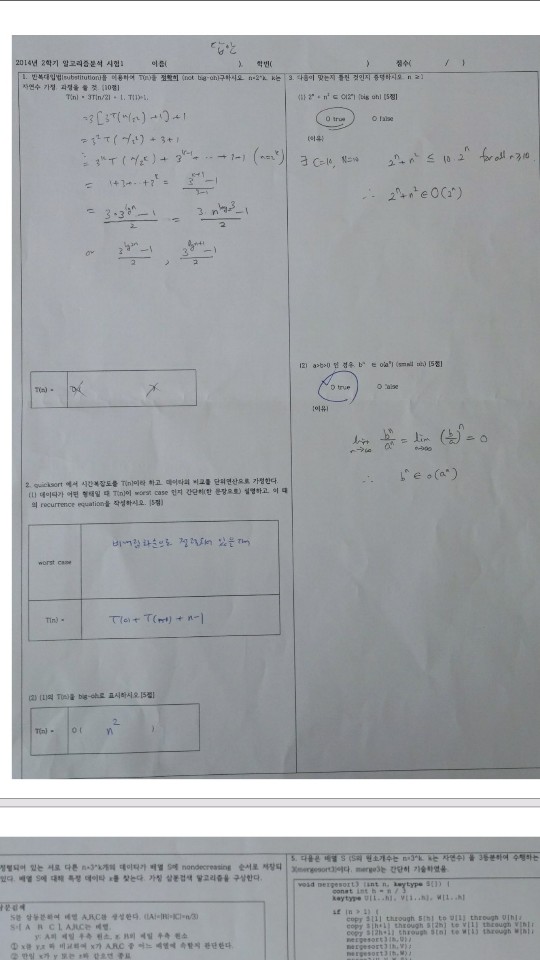 답안
2014년 2학기 알고리즘분석 시험1 이름( ), 학번( ) 점수( / )
1. 반복대입법(substitution)을 이용하여 T(n)을 정확히 (not big-oh)구하시오. n=2^k, k는
자연수 가정. 과정을 쓸 것. [10점]
T(n) = 3T(n/2) + 1, T(1)=1,
=3[3T(n/2²)+1]+1
=3²T(n/2²)+3+1
= 1+3+...+3^k = (3^(k+1)-1)/(3-1)
= (3*3^lgn - 1)/2 = (3·n^lg3 - 1)/2
or
T(n) =
2. quicksort 에서 시간복잡도를 T(n)이라 하고, 데이타의 비교를 단위연산으로 가정한다.
(1) 데이타가 어떤 형태일 때 T(n)이 worst case 인지 간단히(한 문장으로) 설명하고, 이 때
의 recurrence equation을 작성하시오. [5점]
worst case
정렬되어 있을 때
T(n) = T(0) + T(n-1) + n-1
(2) (1)의 T(n)을 big-oh로 표시하시오 [5점]
T(n) = O( n² )
3. 다음이 맞는지 틀린 것인지 증명하시오. n ≥1
(1) 2ⁿ + n² ∈ O(2ⁿ) (big oh) [5점]
O true O false
(이유)
∃ C=10, 2ⁿ+n² ≤ 10·2ⁿ for all n≥10
∴ 2ⁿ+n² ∈ O(2ⁿ)
(2) a>b>0 인 경우 bⁿ ∈ o(aⁿ) (small oh) [5점]
O true O false
(이유)
lim n→∞ bⁿ/aⁿ = lim n→∞ (b/a)ⁿ = 0
∴ bⁿ ∈ o(aⁿ)
정렬되어 있는 서로 다른 n=3^k개의 데이타가 배열 S에 nondecreasing 순서로 저장되
있다. 배열 S에 대해 특정 데이타 x를 찾는다. 가칭 삼분검색 알고리즘을 구상한다.
삼분검색
S를 삼등분하여 배열 A,B,C를 생성한다. (|A|=|B|=|C|=n/3)
S=[ A B C ], A,B,C는 배열.
y: A의 제일 우측 원소, z: B의 제일 우측 원소
① x를 y,z 와 비교하여 x가 A,B,C 중 어느 배열에 속할지 판단한다.
② 만일 x가 y 또는 z와 같으면 종료
5. 다음은 배열 S (S의 원소개수는 n=3^k, k는 자연수) 를 3등분하여 수행하는
3(mergesort3)이다. merge3는 간단히 기술하였음.
void mergesort3 (int n, keytype S[]) {
const int h = n / 3
keytype U[1..h], V[1..h], W[1..h]
if (n > 1) {
copy S[1] through S[h] to U[1] through U[h];
copy S[h+1] through S[2h] to V[1] through V[h];
copy S[2h+1] through S[n] to W[1] through W[h];
mergesort3(h,U);
mergesort3(h,V);
mergesort3(h,W);